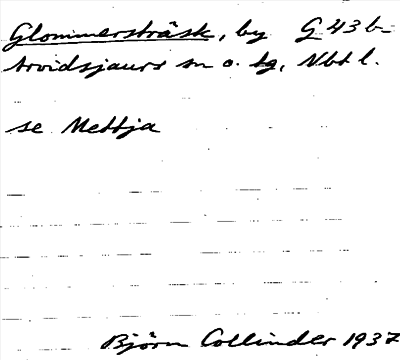 Glommersträsk, by G 43 b-
Arvidsjaurs sn o. tg, Nbt l.
se Mettja
Björn Collinder 1937